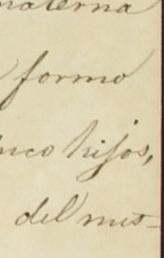 materna
formo
inco hijos,
del mis-